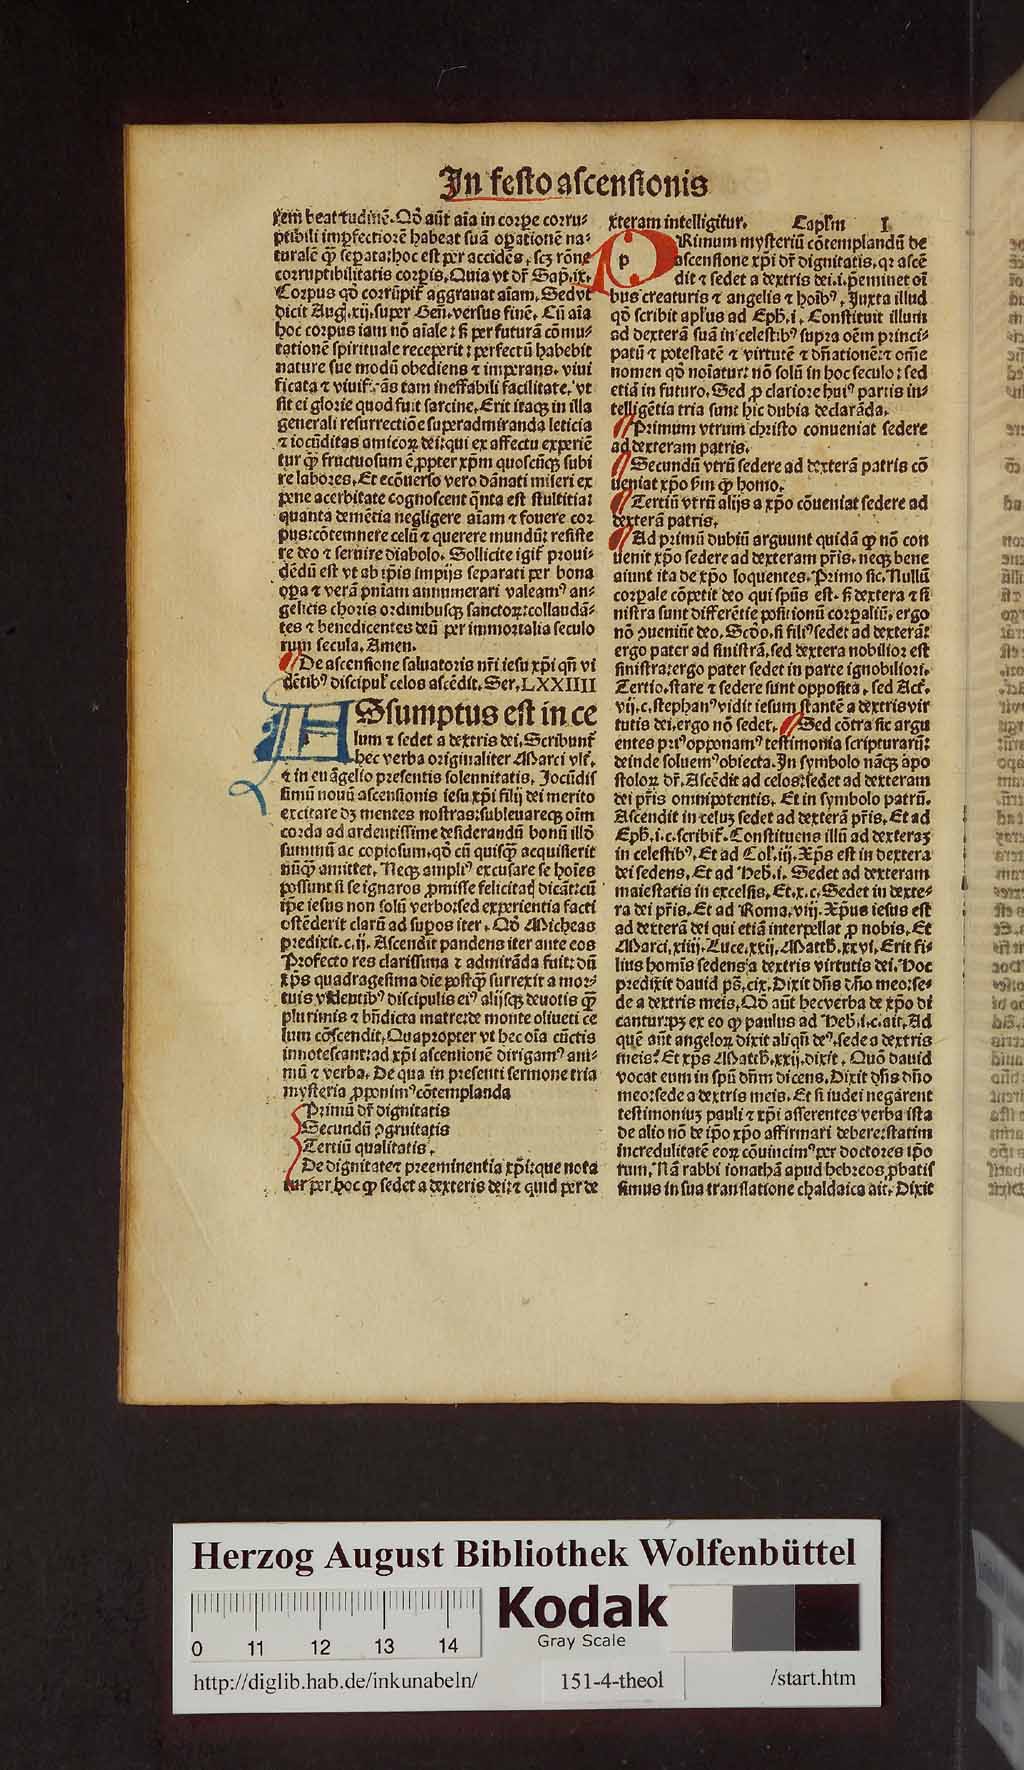 In festo ascensionis
rem beatitudinē. Qd' aūt aīa in corpe corru-
ptibili imperfectiorē habeat suā operationē na-
turalē q̄ seperata: hoc est per accidēs, scz rōne
corruptibilitatis corpis. Quia vt dr̄ Sap. ix.
Corpus qd' corrūpit̄ aggrauat aīam. Sed vt
dicit Aug. xij. super Gen̄. versus finē. Cū aīa
hoc corpus iam nō aīale: s̄ per futurā cōmu-
tationē spirituale receperit: perfectū habebit
nature sue modū obediens ⁊ imperans. viui
ficata ⁊ viuificās tam ineffabili facilitate. vt
sit ei glorie quod fuit sarcine. Erit itaq; in illa
generali resurrectiōe superadmiranda leticia
⁊ iocūditas amicoꝝ dei: qui ex affectu experiē
tur q̄ fructuosum ē ppter xp̄m quoscūq; subi
re labores. Et ecōuerso vero dānati miseri ex
pene acerbitate cognoscent q̄nta est stultitia:
quanta demētia negligere aīam ⁊ fouere cor
pus: cōtemnere celū ⁊ querere mundū: resiste
re deo ⁊ seruire diabolo. Sollicite igit̄ proui-
dēdū est vt ab ip̄is impijs separati per bona
opa ⁊ verā pniam annumerari valeam⁹ an-
gelicis choris ordinibusq; sanctoꝝ: collaudā-
tes ⁊ benedicentes deū per immortalia seculo
rum secula. Amen.
De ascensione saluatoris nr̄i iesu xp̄i qn̄ vi
dētib⁹ discipul' celos ascēdit. Ser. LXXIIII
ASsumptus est in ce
lum ⁊ sedet a dextris dei. Scribunt̄
hec verba originaliter Marci vlt̄.
⁊ in euāgelio presentis solennitatis. Jocūdis
simū nouū ascensionis iesu xp̄i filij dei merito
excitare dꝫ mentes nostras: subleuareq; oīm
corda ad ardentissime desiderandū bonū illd'
summū ac copiosum. qd' cū quisq̄ acquisierit
nūq̄ amittet. Neq; ampli⁹ excusare se hoīes
possunt si se ignaros pmisse felicitatꝭ dicāt: cū
ip̄e iesus non solū verbo: sed experientia facti
ostēderit clarū ad supos iter. Qd' Micheas
predixit. c. ij. Ascendit pandens iter ante eos
Profecto res clarissima ⁊ admirāda fuit: dū
xp̄s quadragesima die postq̄ surrexit a mor-
tuis vidētib⁹ discipulis ei⁹ alijsq; deuotis q̄
plurimis ⁊ bn̄dicta matre: de monte oliueti ce
lum cōscendit. Quapropter vt hec oīa cūctis
innotescant: ad xp̄i ascentionē dirigam⁹ ani-
mū ⁊ verba. De qua in presenti sermone tria
mysteria pponim⁹ cōtemplanda
Primū dr̄ dignitatis
Secundū ꝯgruitatis
Tertiū qualitatis.
De dignitate ⁊ preeminentia xp̄i: que nota
tur per hoc ꝙ sedet a dexteris dei: ⁊ quid per de
xteram intelligitur. Capl'm I
PRimum mysteriū cōtemplandū de
p
ascensione xp̄i dr̄ dignitatis. qꝛ ascē
dit ⁊ sedet a dextris dei. i. p̄eminet oī
bus creaturis ⁊ angelis ⁊ hoīb⁹. Juxta illud
qd' scribit apl'us ad Eph. i. Constituit illum
ad dexterā suā in celestib⁹ supra oēm princi-
patū ⁊ potestatē ⁊ virtutē ⁊ dn̄ationē: ⁊ om̄e
nomen qd' noīatur: nō solū in hoc seculo: sed
etiā in futuro. Sed p clariore hui⁹ partis in-
telligētia tria sunt hic dubia declarāda.
Primum vtrum christo conueniat sedere
ad dexteram patris.
Secundū vtrū sedere ad dexterā patris cō
ueniat xp̄o s̄m ꝙ homo.
Tertiū vtrū alijs a xp̄o cōueniat sedere ad
dexterā patris.
Ad primū dubiū arguunt quidā ꝙ nō con
uenit xp̄o sedere ad dexteram pr̄is. neq; bene
aiunt ita de xp̄o loquentes. Primo sic. Nullū
corpale cōpetit deo qui spūs est. s̄ dextera ⁊ si
nistra sunt differētie positionū corpaliū. ergo
nō ꝯueniūt deo. Scd'o. si fili⁹ sedet ad dexterā:
ergo pater ad sinistrā. sed dextera nobilior est
sinistra: ergo pater sedet in parte ignobiliori.
Tertio. stare ⁊ sedere sunt opposita. sed Act̄.
vij. c. stephan⁹ vidit iesum stantē a dextris vir
tutis dei. ergo nō sedet. Sed cōtra sic argu
entes pri⁹ opponam⁹ testimonia scripturarū:
deinde soluem⁹ obiecta. In symbolo nāq; apo
stoloꝝ dr̄. Ascēdit ad celos: sedet ad dexteram
dei pr̄is omnipotentis. Et in symbolo patrū.
Ascendit in celuꝫ sedet ad dexterā pr̄is. Et ad
Eph. i. c. scribit̄. Constituens illū ad dexteraꝫ
in celestib⁹. Et ad Col'. iij. Xp̄s est in dextera
dei sedens. Et ad Heb. i. Sedet ad dexteram
maiestatis in excelsis. Et. x. c. Sedet in dexte-
ra dei pr̄is. Et ad Roma. viij. Xp̄us iesus est
ad dexterā dei qui etiā interpellat p nobis. Et
Marci. xiiij. Luce. xxij. Matth. xxvi. Erit fi-
lius homīs sedens a dextris virtutis dei. Hoc
predixit dauid ps̄. cix. Dixit dn̄s dn̄o meo: se-
de a dextris meis. Qd' aūt hec verba de xp̄o di
cantur: pꝫ ex eo ꝙ paulus ad Heb. i. c. ait. Ad
quē aūt angeloꝝ dixit aliqn̄ de⁹. sede a dextris
meis? Et xp̄s Matth. xxij. dixit. Quō dauid
vocat eum in spū dn̄m dicens. Dixit dn̄s dn̄o
meo: sede a dextris meis. Et si iudei negarent
testimoniuꝫ pauli ⁊ xp̄i asserentes verba ista
de alio nō de ip̄o xp̄o affirmari debere: statim
incredulitatē eoꝝ cōuincim⁹ per doctores ip̄o
rum. Nā rabbi ionathā apud hebreos pbatis
simus in sua translatione chaldaica ait. Dixit
Herzog August Bibliothek Wolfenbüttel
Kodak
Gray Scale
0 11 12 13 14
http://diglib.hab.de/inkunabeln/ 151-4-theol /start.htm